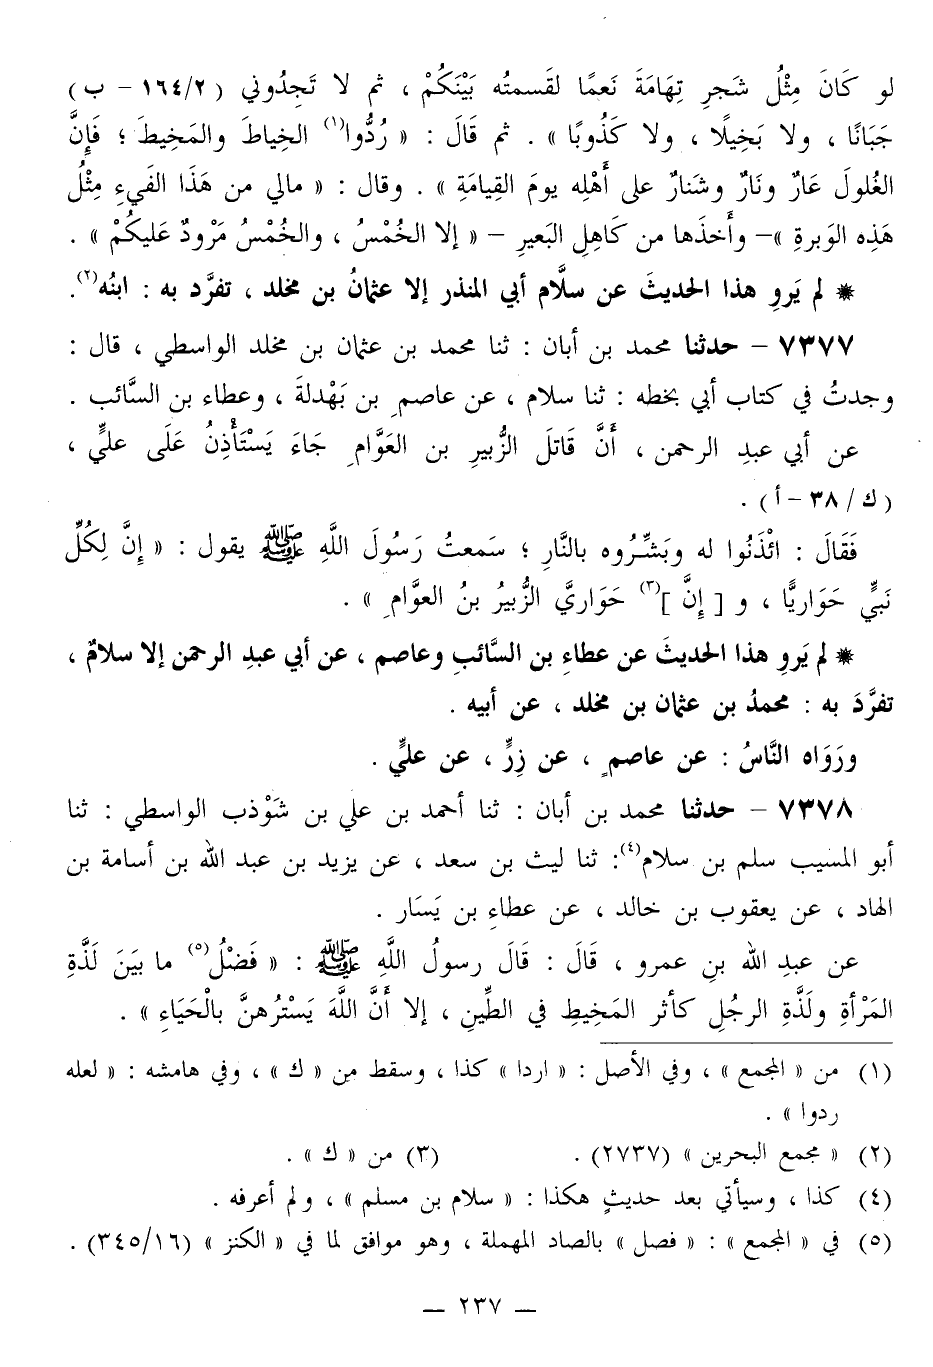 لو كَانَ مِثْلُ شَجرِ تِهَامَةَ نَعمًا لقَسمتُه بَيْنَكُمْ ، ثم لا تَجِدُوني ( ١٦٤/٢ – ب )
جَبَانًا ، ولا بَخِيلًا ، ولا كَذُوبًا » . ثم قَالَ : « رُدُّوا(١) الخِياطَ والمَخِيطَ ؛ فَإِنَّ
الغُلولَ عَارٌ ونَارٌ وشَنارٌ على أَهْلِه يومَ القِيامَةِ » . وقال : « مالي من هَذَا الفَيءِ مِثْلُ
هَذِه الوَبرةِ »– وأَخذَها من كَاهِلِ البَعيرِ – « إلا الخُمْسُ ، والخُمْسُ مَرْودٌ عَليكُمْ » .
* لم يَروِ هذا الحديثَ عن سلَّام أبي المنذر إلا عثمانُ بن مخلد ، تفرَّد به : ابنُه(٢).
٧٣٧٧ – حدثنا محمد بن أبان : ثنا محمد بن عثمان بن مخلد الواسطي ، قال :
وجدتُ في كتاب أبي بخطه : ثنا سلام ، عن عاصمِ بن بَهْدلةَ ، وعطاء بن السَّائب .
عن أبي عبدِ الرحمن ، أَنَّ قَاتلَ الزُّبيرِ بن العَوَّامِ جَاءَ يَسْتَأْذِنُ عَلَى عليٍّ ،
( ك / ٣٨ – أ ) .
فَقَالَ : ائْذَنُوا له وبَشِّرُوه بالنَّارِ ؛ سَمعتُ رَسُولَ اللَّهِ ﷺ يقول : « إِنَّ لِكُلِّ
نَبيٍّ حَوَاريًّا ، و [ إِنَّ ](٣) حَوَاريَّ الزُّبيرُ بنُ العوَّامِ » .
* لم يَروِ هذا الحديثَ عن عطاءِ بن السَّائبِ وعاصم ، عن أبي عبدِ الرحمن إلا سلامٌ ،
تفرَّدَ به : محمدُ بن عثمان بن مخلد ، عن أبيه .
ورَوَاه النَّاسُ : عن عاصمٍ ، عن زِرٍّ ، عن عليٍّ .
٧٣٧٨ – حدثنا محمد بن أبان : ثنا أحمد بن علي بن شَوْذب الواسطي : ثنا
أبو المسيب سلم بن سلام(٤): ثنا ليث بن سعد ، عن يزيد بن عبد الله بن أسامة بن
الهاد ، عن يعقوب بن خالد ، عن عطاءِ بن يَسَار .
عن عبدِ الله بنِ عمرو ، قَالَ : قَالَ رسولُ اللَّهِ ﷺ : « فَضْلُ(٥) ما بَيَنَ لَذَّةِ
المَرْأةِ ولَذَّةِ الرجُلِ كأثر المَخِيطِ في الطِّينِ ، إلا أَنَّ اللَّهَ يَسْتْرُهنَّ بالْحَيَاءِ » .
(١) من « المجمع » ، وفي الأصل : « اردا » كذا ، وسقط من « ك » ، وفي هامشه : « لعله
ردوا » .
(٢) « مجمع البحرين » (٢٧٣٧) . (٣) من « ك » .
(٤) كذا ، وسيأتي بعد حديثٍ هكذا : « سلام بن مسلم » ، ولم أعرفه .
(٥) في « المجمع » : « فصل » بالصاد المهملة ، وهو موافق لما في « الكنز » (٣٤٥/١٦) .
– ٢٣٧ –